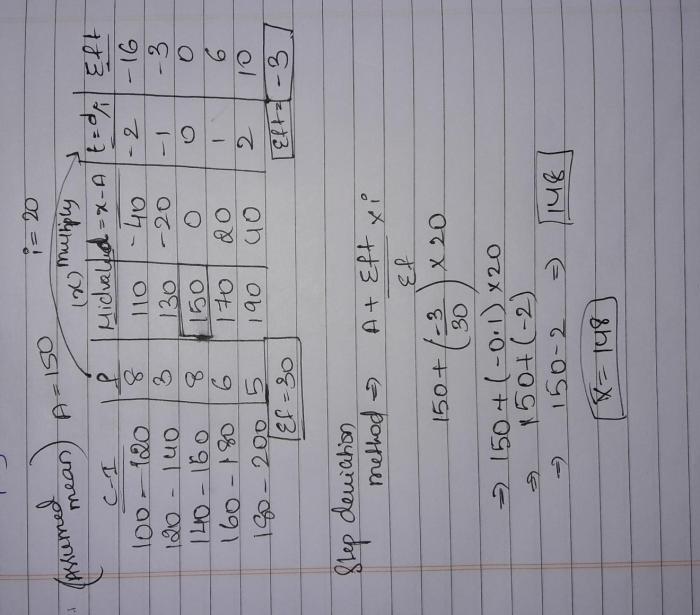 (Assumed mean) A = 150 i = 20
(x) multiply
C-I f Midvalue d = x-A t = d/i Σft
100 - 120 8 110 -40 -2 -16
120 - 140 3 130 -20 -1 -3
140 - 160 8 150 0 0 0
160 - 180 6 170 20 1 6
180 - 200 5 190 40 2 10
Σf = 30 Σft = -3
Step deviation
method ⇒ A + Σft/Σf × i
150 + (-3/30) × 20
⇒ 150 + (-0.1) × 20
⇒ 150 + (-2)
⇒ 150 - 2 ⇒ 148
x̄ = 148